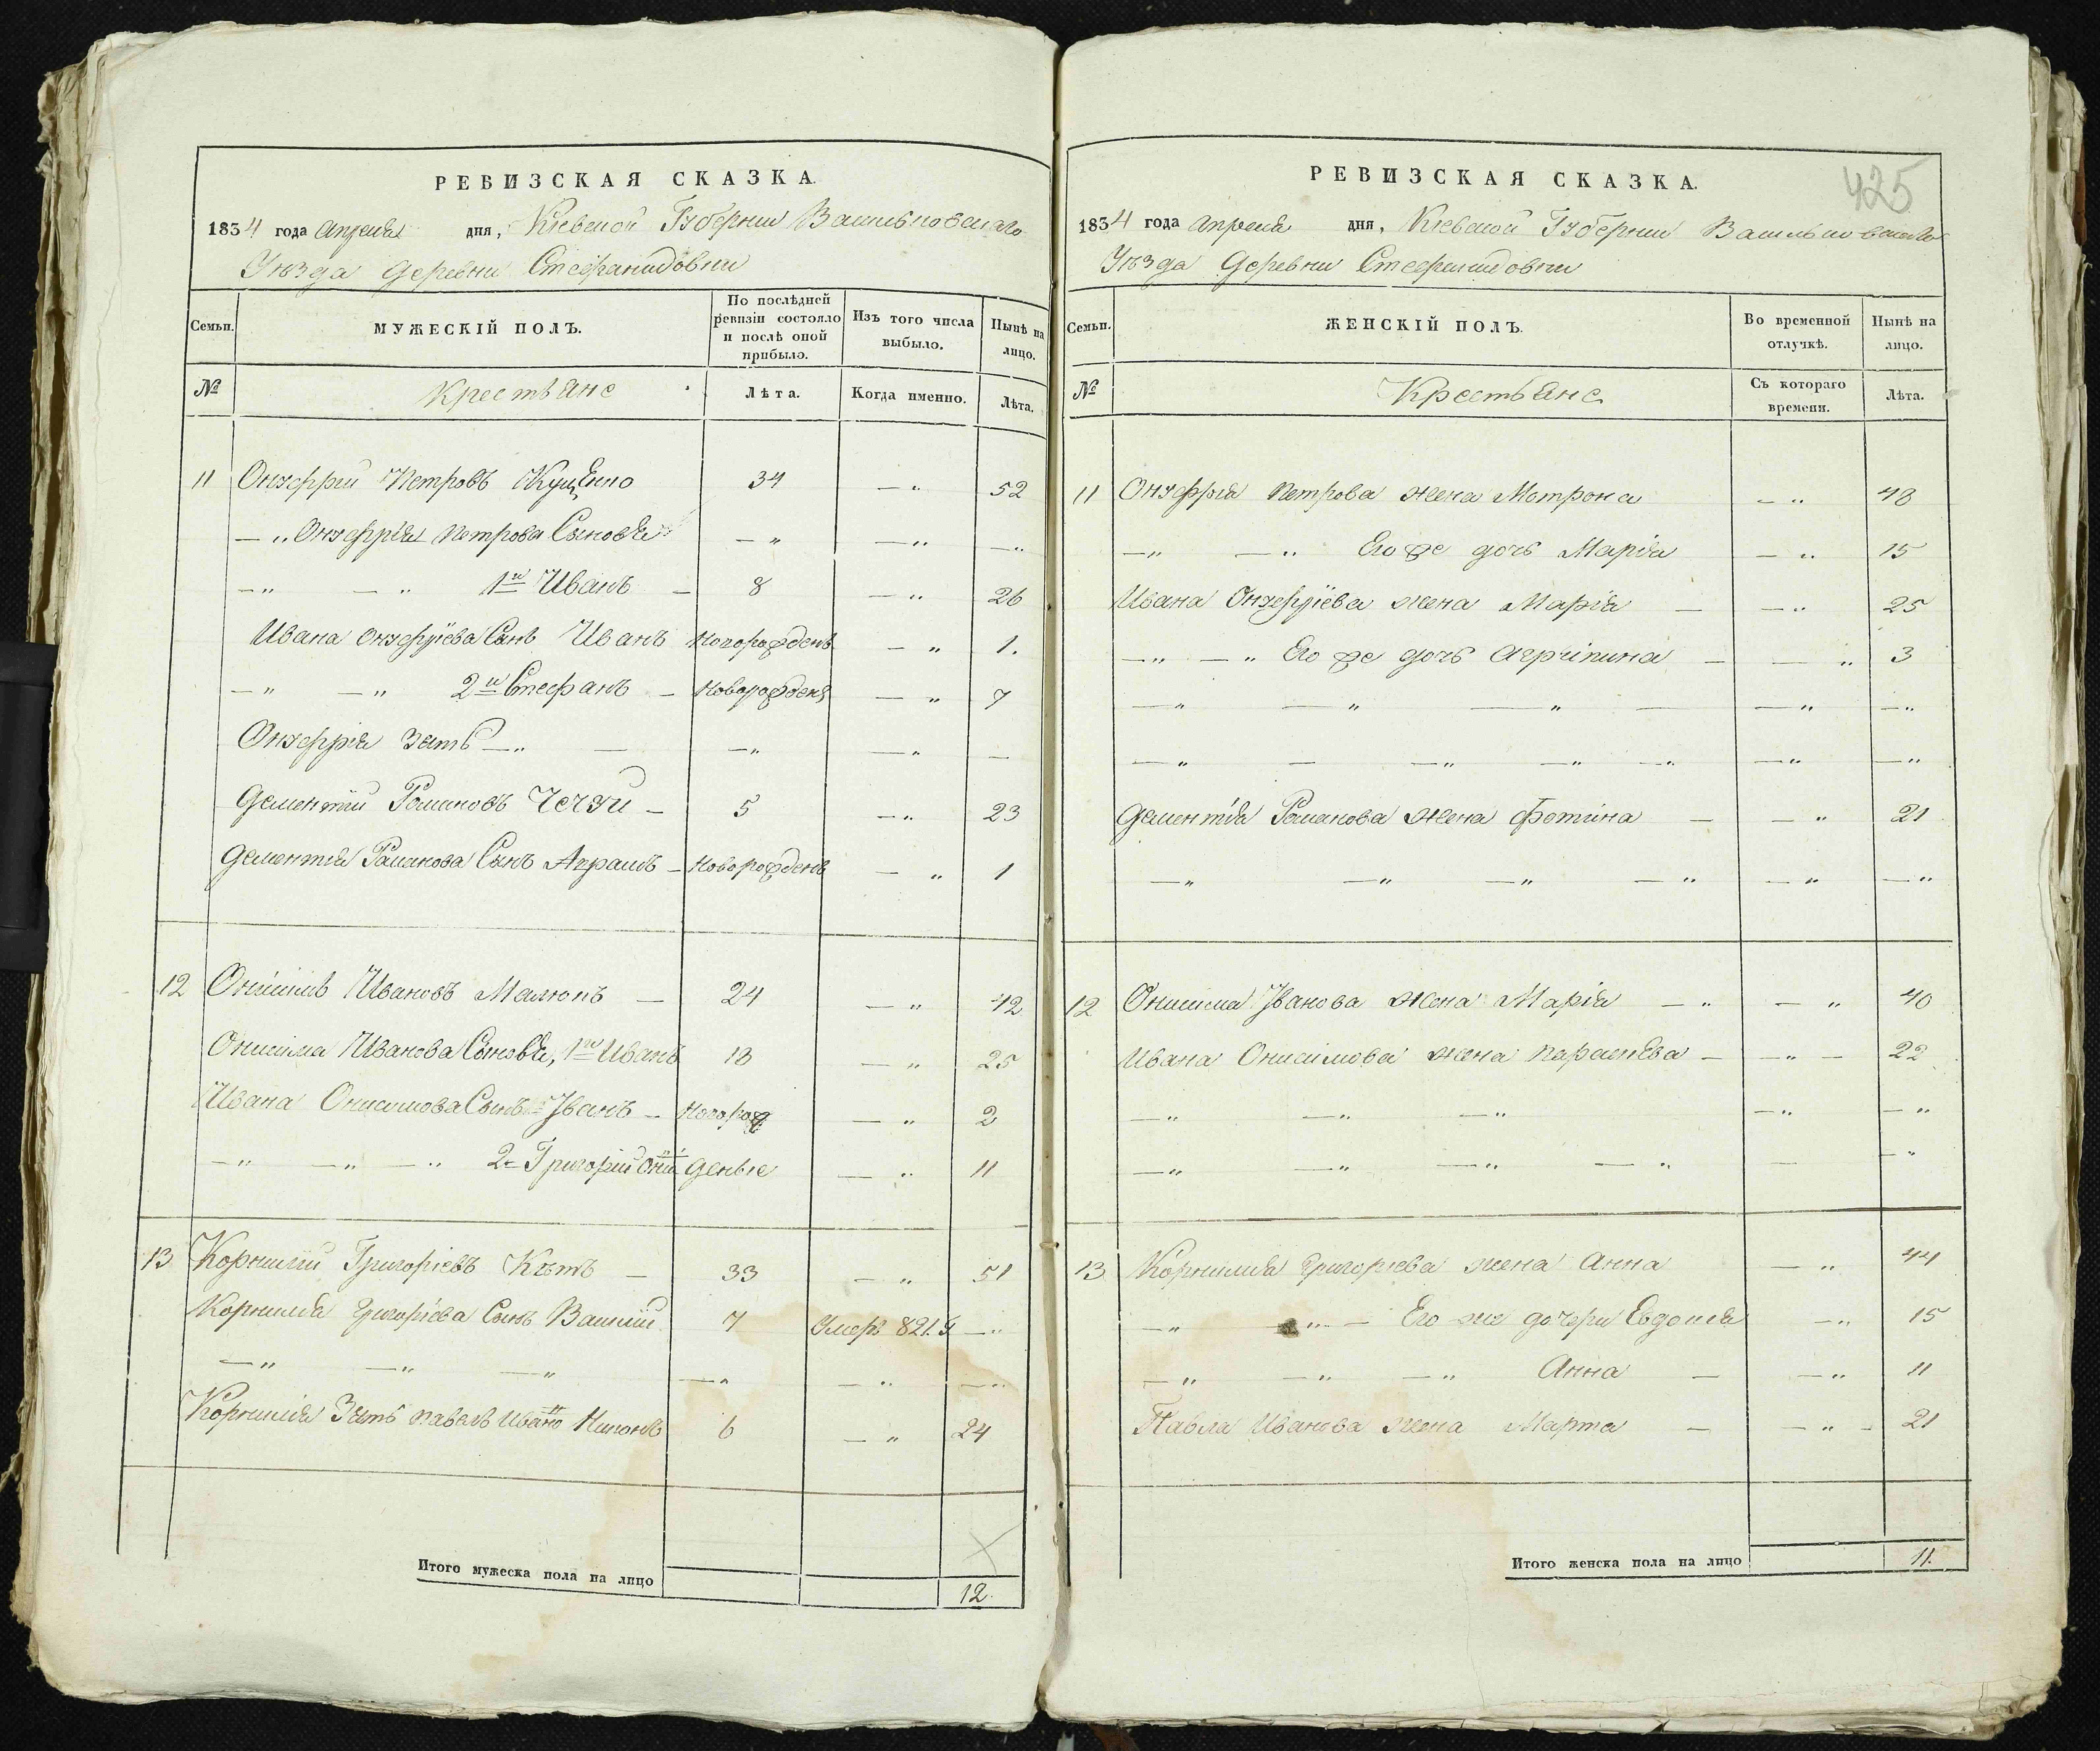 РЕВИЗСКАЯ СКАЗКА.
1834 года Апреля дня, Кіевской Губерніи Васильковскаго
Уѣзда Деревни Стефанидовки
Семьи.
МУЖЕСКІЙ ПОЛЪ.
По послѣдней ревизіи состояло и послѣ оной прибыло.
Изъ того числа выбыло.
Нынѣ на лицо.
№
Крестьяне
Лѣта.
Когда именно.
Лѣта.
11 Онуфрій Петровъ Куценко 34 — „ 52
— „ Онуфрія Петрова Сыновья — „ — „ — „
— „ — „ 1й Иванъ — 8 — „ 26
Ивана Онуфріева Сынъ Иванъ Новорожденъ — „ 1.
— „ — „ 2й Стефанъ — Новорожденъ — „ 7
Онуфрія Зять — „ — — „ — „ —
Дементій Романовъ Чечуй — 5 — „ 23
Дементія Романова Сынъ Аврамъ — Новорожденъ — „ 1
12 Онисимъ Ивановъ Малюкъ — 24 — „ 42
Онисима Иванова Сыновья, 1й Иванъ 18 — „ 25
Ивана Онисимова Сынъ Іванъ — Новорож — „ 2
— „ — „ — „ 2й Григорій Они деные — „ 11
13 Корнилій Григоріевъ Кѣтъ — 33 — „ 51
Корнилія Григоріева Сынъ Василій 7 Умеръ 821. г — „
— „ — „ — „ — „ — „ — „
Корнилія Зять Павелъ Ивано 6 — „ 24
Итого мужеска пола на лицо 12.
425
РЕВИЗСКАЯ СКАЗКА.
1834 года Апреля дня, Кіевской Губерніи Васильковскаго
Уѣзда Деревни Стефанидовки
Семьи.
ЖЕНСКІЙ ПОЛЪ.
Во временной отлучкѣ.
Нынѣ на лицо.
№
Крестьяне
Съ котораго времени.
Лѣта.
11 Онуфрія Петрова жена Мотрона — „ 48
— „ — „ Его же дочь Марія — „ 15
Ивана Онуфріева жена Марія — — „ 25
— „ — „ Его же дочь Агрипина — — „ 3
— „ — „ — „ — — „ — „
— „ — — „ — „ — „ — „ — „
Дементія Романова жена Фотина — — „ 21
— „ — „ — „ — „ — „ — „
12 Онисима Іванова жена Марія — „ — „ 40
Ивана Онисимова жена Параскева — — „ — 22
— „ — „ — „ — „ — „
— „ — „ — „ — „ — — „
13 Корнилія Григорьева жена Анна — „ 44
— „ — „ — Его же дочери Евдокія — „ 15
— „ — „ — „ Анна — — „ 11
Павла Иванова жена Марта — — „ — 21
Итого женска пола на лицо 11.